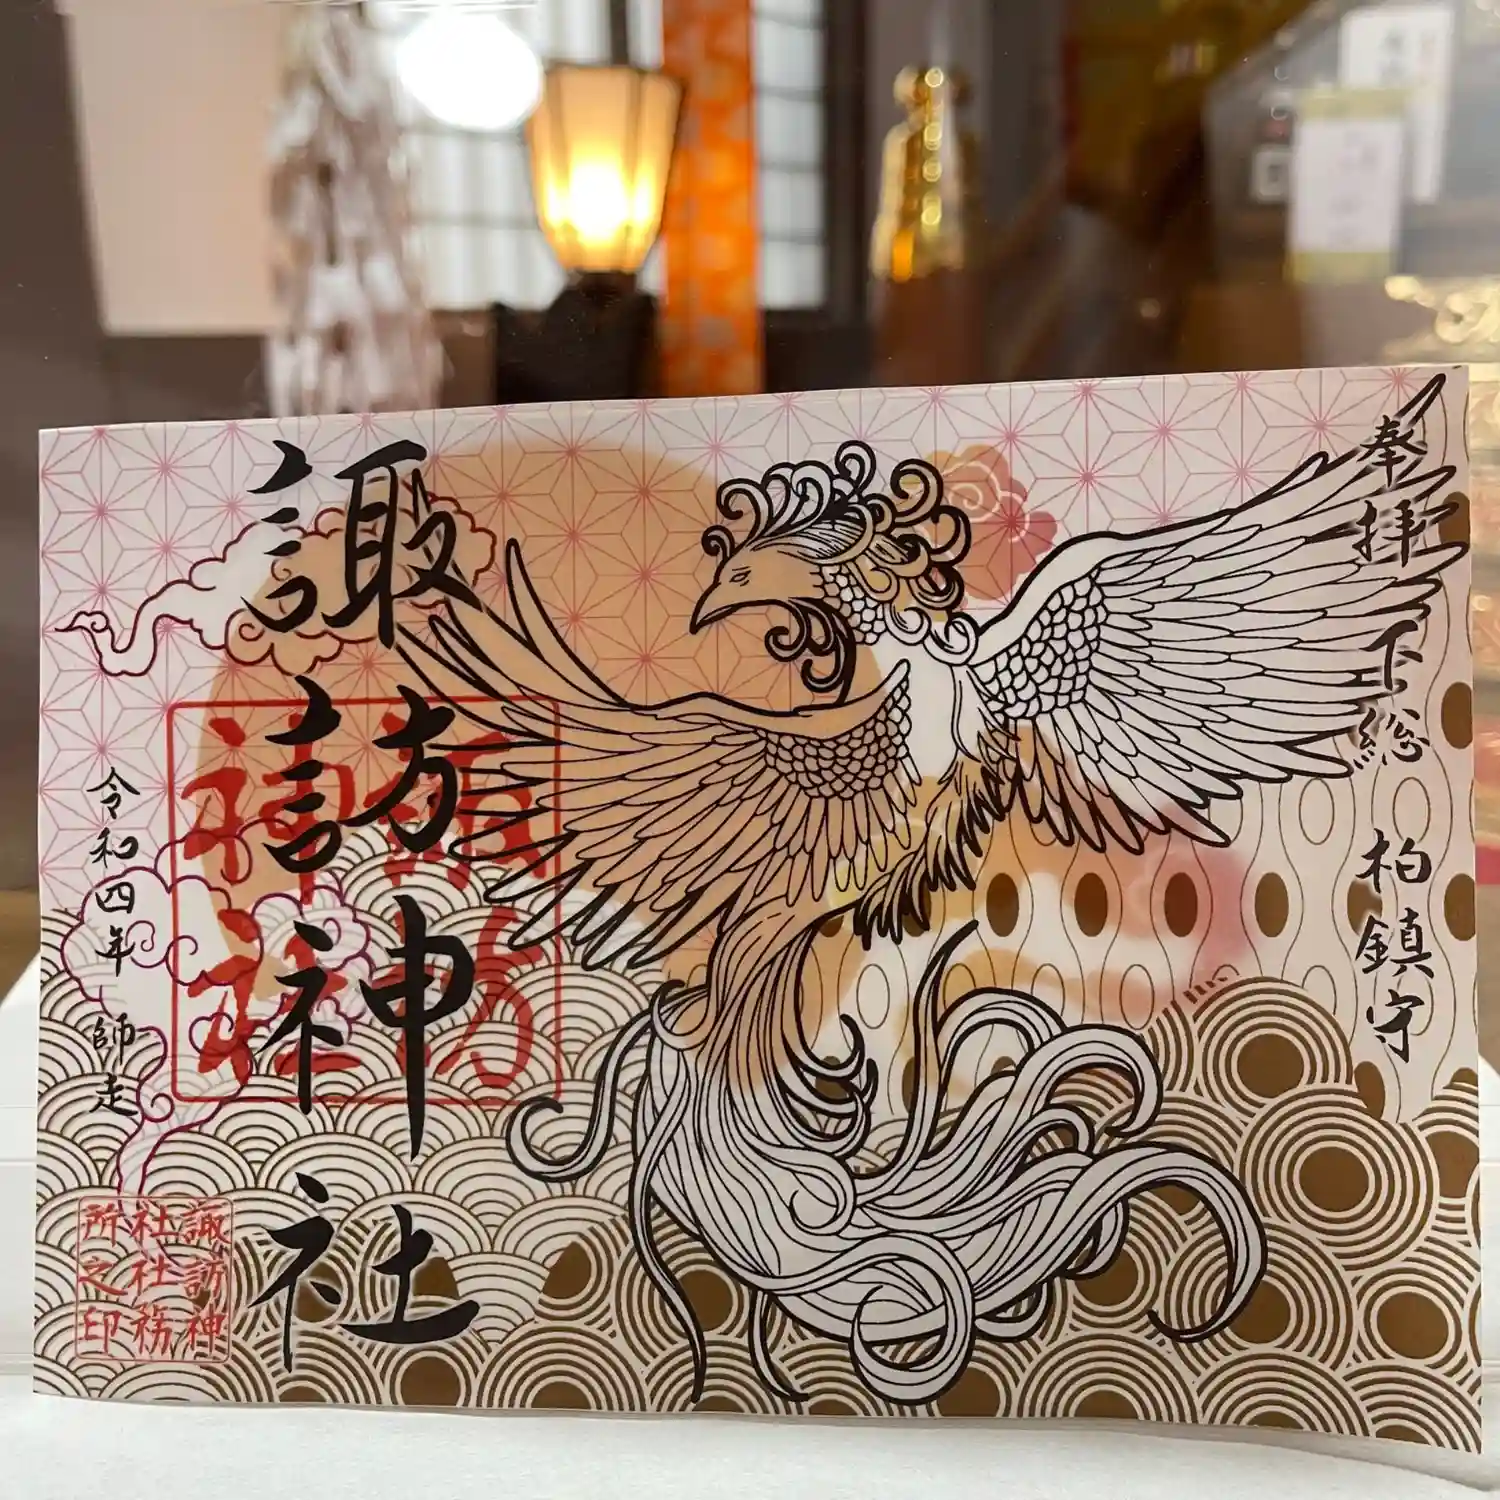 奉拝 下総 柏鎮守
諏訪神社
令和四年 師走
諏訪
神社
諏訪神
社社務
所之印